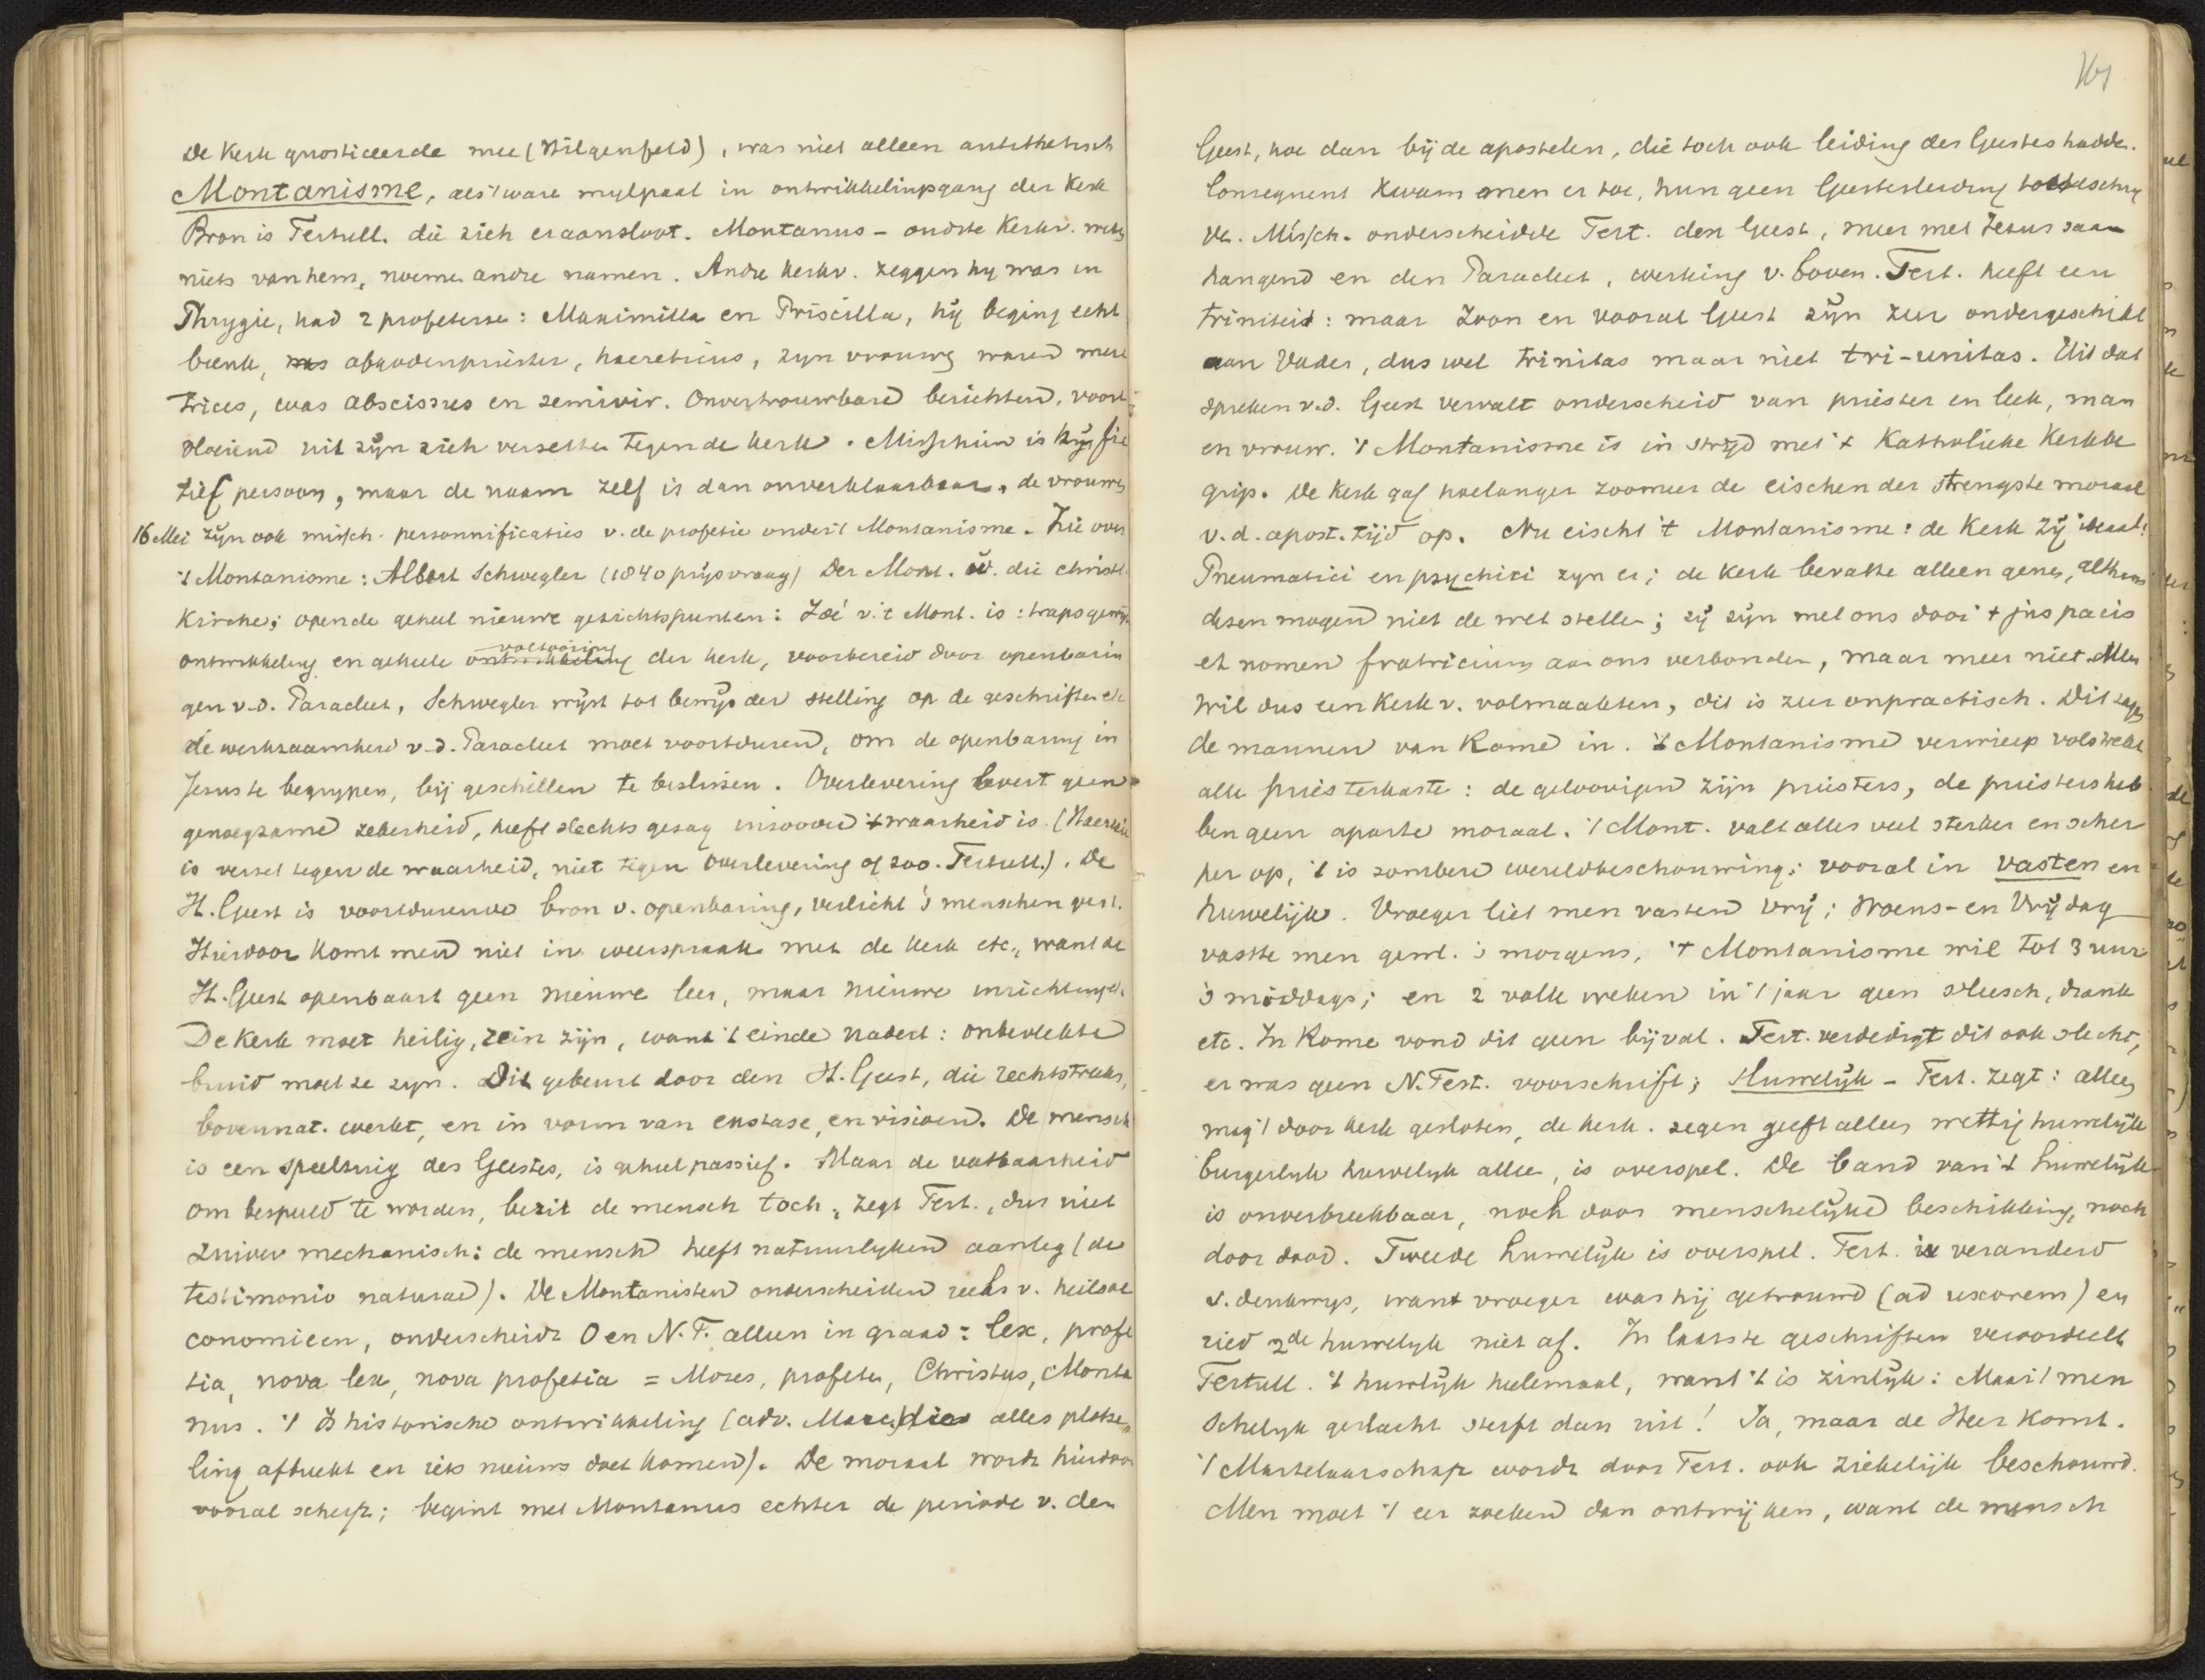 De Kerk gnosticeerde mee (Hilgenfeld), was niet alleen antithetisch
Montanisme, als 't ware mylpaal in ontwikkelingsgang der Kerk
Bron is Tertull. die zich eraansloot. Montanus - oudste Kerkv. weten
niets van hem, noemen andre namen. Andre kerkv. zeggen hy was in
Phrygie, had 2 profetesse: Maximilla en Priscilla, hij beging echt
breuk, was afgodenpriester, haereticus, zyn vrouwen waren mere
trices, was abscissus en semivir. Onvertrouwbare berichten, voort
vloeiend uit zijn zich verzetten tegen de kerk. Misschien is hij fic
tief persoon, maar de naam zelf is dan onverklaarbaar, de vrouwen
16 Mei zijn ook missch. personnificaties v. de profetie onder 't Montanisme. Zie over
't Montanisme: Albert Schwegler (1840 prijsvraag) Der Mont. u. die christl.
Kirche; opende geheel nieuwe gezichtspunten: Idee v. 't Mont. is: trapsgewijze
voltooiing
ontwikkeling en geheele ontwikkeling der kerk, voorbereid door openbarin
gen v.d. Paracleet, Schwegler wijst tot bewijs der stelling op de geschriften etc
de werkzaamheid v.d. Paracleet moet voortduren, om de openbaring in
Jesus te begrypen, bij geschillen te beslissen. Overlevering levert geen
genoegzame zekerheid, heeft slechts gezag inzoover 't waarheid is. (Haeresie
is verzet tegen de waarheid, niet tegen overlevering of zoo. Tertull.). De
H. Geest is voortdurende bron v. openbaring, verlicht 's menschen geest.
Hierdoor komt men niet in weerspraak met de kerk etc., want de
H. Geest openbaart geen nieuwe leer, maar nieuwe inrichtingen.
De Kerk moet heilig, rein zijn, want 't einde nadert: onbevlekte
bruid moet ze zyn. Dit gebeurt door den H. Geest, die rechtstreeks,
bovennat. werkt, en in vorm van exstase, en visioen. De mensch
is een speeltuig des Geestes, is geheel passief. Maar de vatbaarheid
om bespeeld te worden, bezit de mensch toch, zegt Tert., dus niet
zuiver mechanisch: de mensch heeft natuurlyken aanleg (de
testimonio naturae). De Montanisten onderscheiden reeks v. heilsoe
conomieen, onderscheidt O en N. T. alleen in graad: lex, profe
tia, nova lex, nova profetia = Mozes, profeten, Christus, Monta
nus. 't Is historische ontwikkeling (adv. Marc. die alles plotse„
ling afbreekt en iets nieuws doet komen). De moraal wordt hierdoor
vooral scherp; begint met Montanus echter de periode v. den
161
Geest, hoe dan bij de apostelen, die toch ook leiding des Geestes hadden.
Consequent kwam men er toe, hun geen Geestesleiding toeteschrij
ven. Missch. onderscheidde Tert. den Geest, meer met Jezus saam
hangend en den Paracleet, werking v. boven. Tert. heeft een
triniteit: maar Zoon en vooral Geest zijn zeer ondergeschikt
aan Vader, dus wel trinitas maar niet tri-unitas. Uit dat
spreken v.d. Geest vervalt onderscheid van priester en leek, man
en vrouw. 't Montanisme is in strijd met 't Katholieke Kerkbe
grip. De Kerk gaf hoelanger zoomeer de eischen der strengste moraal
v.d. apost. tijd op. Nu eischt 't Montanisme: de Kerk zij ideaal:
Pneumatici en psychici zyn er; de kerk bevatte alleen genen, althans
dezen mogen niet de wet stellen; zij zijn met ons door 't jus pacis
et nomen fratricium aan ons verbonden, maar meer niet. Men
wil dus een Kerk v. volmaakten, dit is zeer onpractisch. Dit zagen
de mannen van Rome in. 't Montanisme verwierp volstrekt
alle priesterkaste: de geloovigen zijn priesters, de priesters heb
ben geen aparte moraal. 't Mont. vat alles veel sterker en scher
per op, 't is sombere wereldbeschouwing: vooral in vasten en
huwelijk. Vroeger liet men vasten vrij; Woens- en Vrijdag
vastte men gewl. 's morgens, 't Montanisme wil tot 3 uur
's middags; en 2 volle weken in 't jaar geen vleesch, drank
etc. In Rome vond dit geen bijval. Tert. verdedigt dit ook slecht,
er was geen N. Test. voorschrift; Huwelijk - Tert. zegt: alleen
mag 't door kerk gesloten, de kerk. zegen geeft alleen wettig huwelijk
burgerlyk huwelyk alleen, is overspel. De band van 't huwelijk
is onverbreekbaar, noch door menschelijke beschikking, noch
door dood. Tweede huwelijk is overspel. Tert. is veranderd
v. denkwys, want vroeger was hij getrouwd (ad uxorem) en
ried 2de huwelyk niet af. In laatste geschriften veroordeelt
Tertull. 't huwlijk heelemaal, want 't is zinlijk: Maar 't men
schelyk geslacht sterft dan uit! Ja, maar de Heer komt.
't Martelaarschap wordt door Tert. ook ziekelijk beschouwd.
Men moet 't eer zoeken dan ontwijken, want de mensch